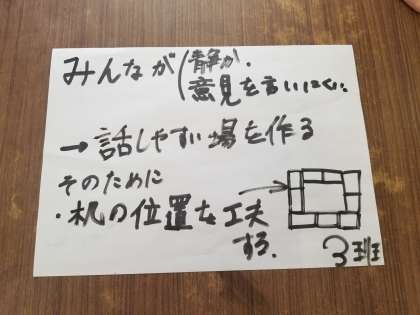 みんなが(静か.
意見を言いにくい.
→話しやすい場を作る
そのために
・机の位置を工夫
する.
3班